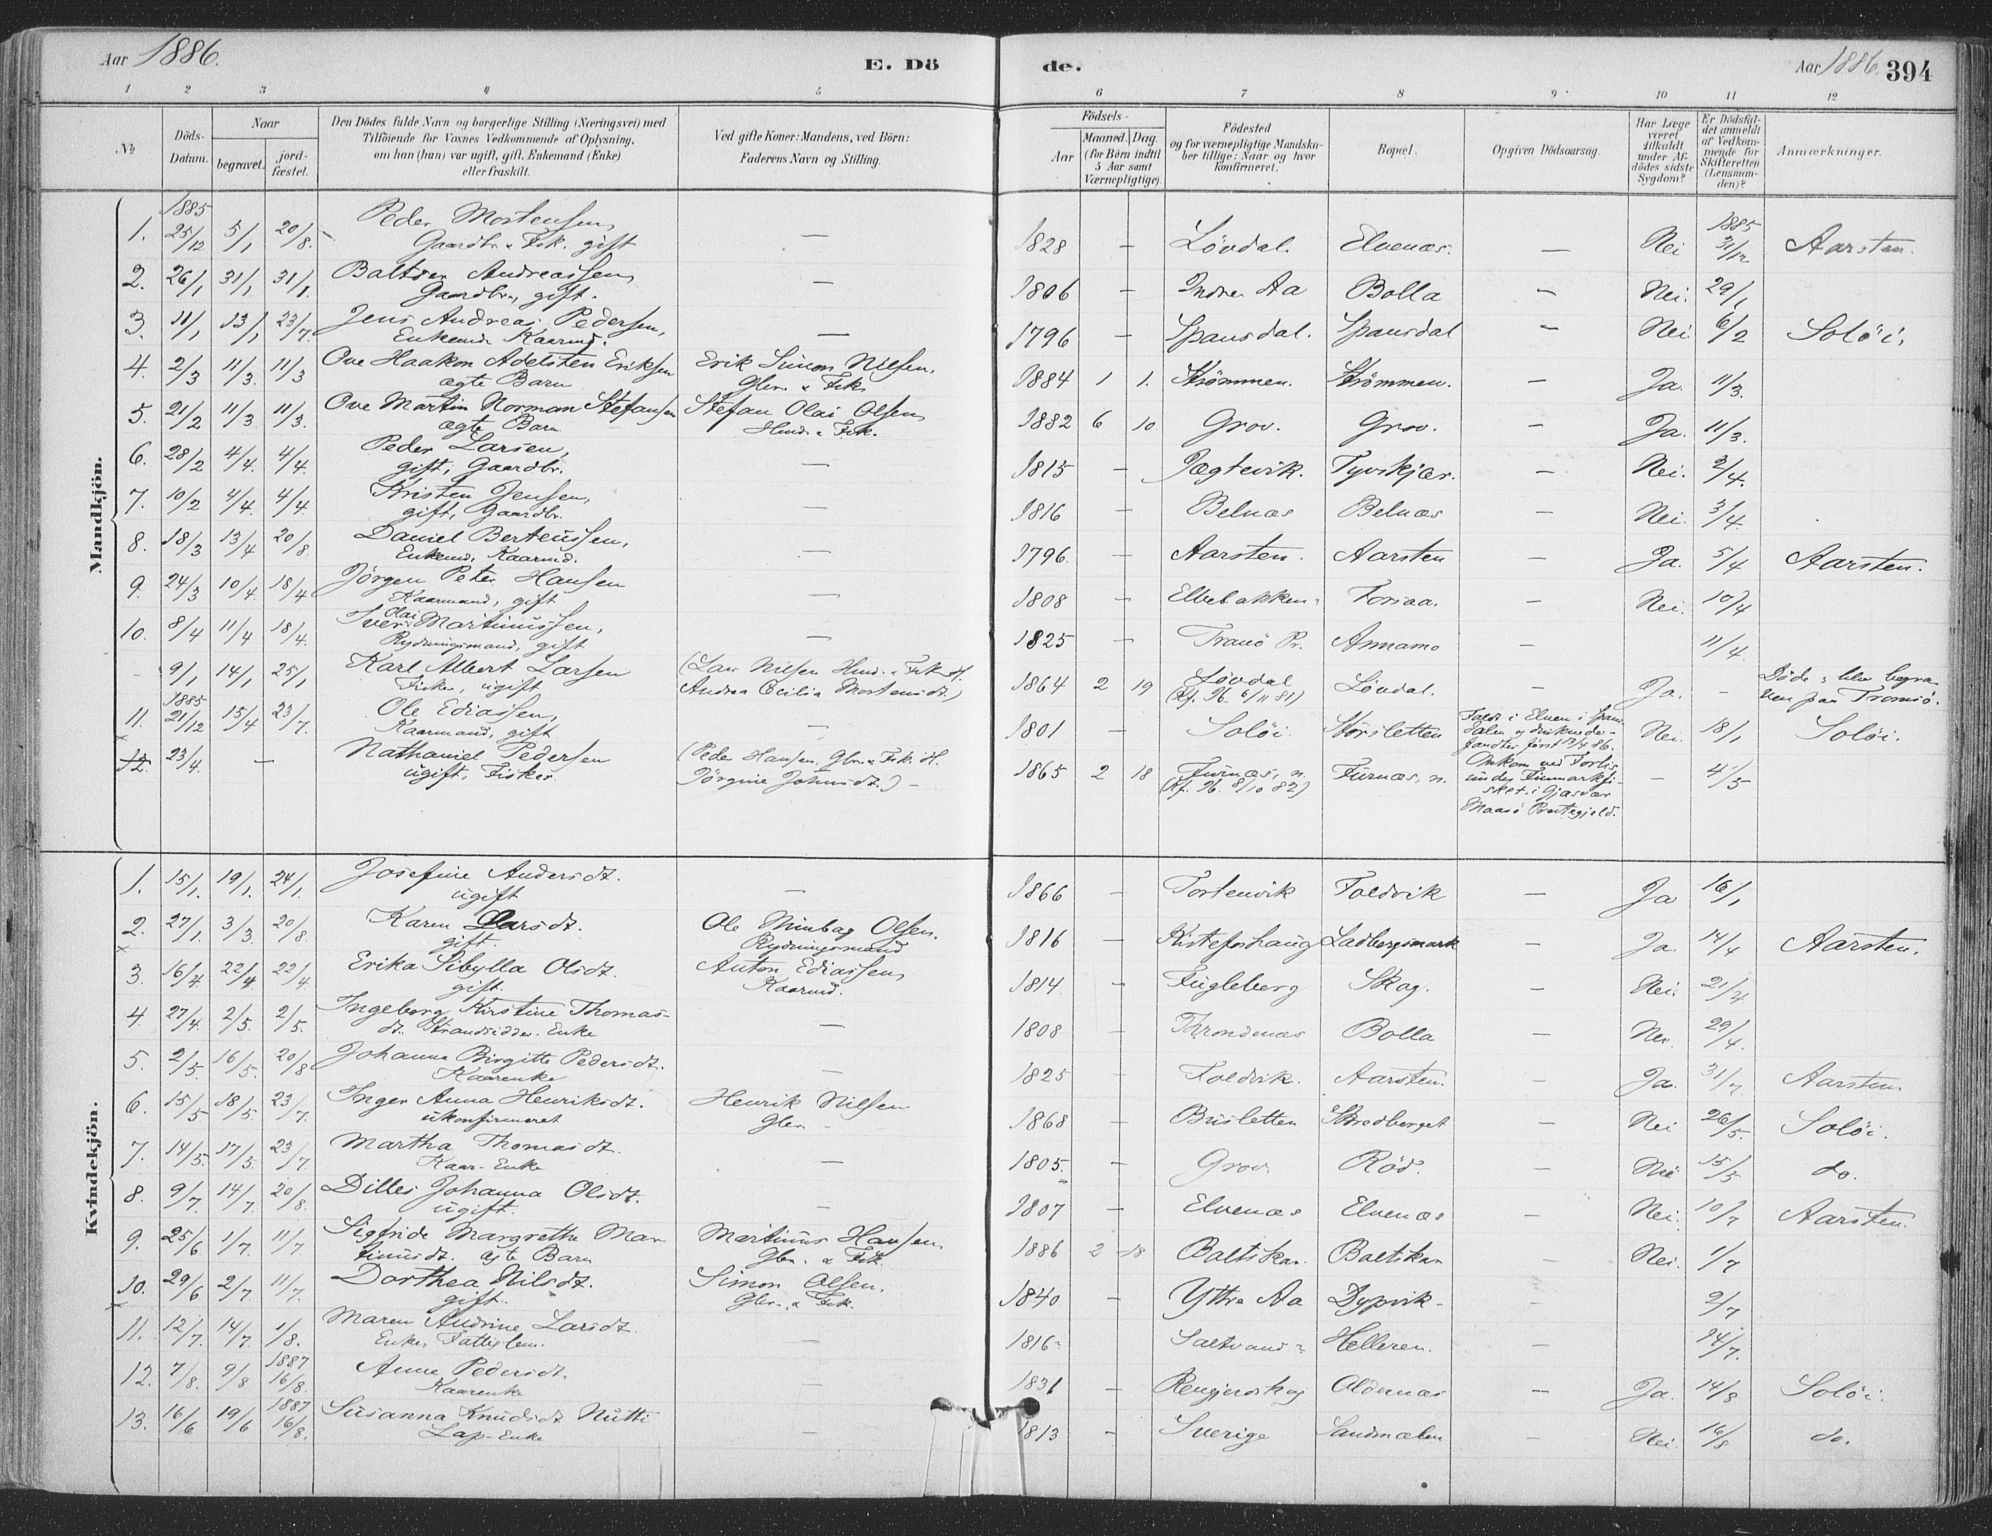 Aar 1886.
E. Dö
de.
Aar 1886. 394
1 2 3 4 5 6 7 8 9 10 11 12
No
Döds-Datum.
Naar
begravet.
jord-fæstet.
Den Dödes fulde Navn og borgerlige Stilling (Næringsvei) med
Tilföiende for Voxnes Vedkommende af Oplysning,
om han (hun) var ugift, gift, Enkemand (Enke)
eller fraskilt.
Ved gifte Koner: Mandens, ved Börn:
Faderens Navn og Stilling.
Födsels-
Aar
Maaned. Dag.
(for Börn indtil
5 Aar samt
Værnepligtige).
Födested
og for værnepligtige Mandska-
ber tillige: Naar og hvor
konfirmeret.
Bopæl.
Opgiven Dödsaarsag.
Har Læge
været
tilkaldt
under Af-
dödes sidste
Sygdom?
Er Dödsfal-
det anmeldt
af Vedkom-
mende for
Skifteretten
(Lensman-
den)?
Anmærkninger.
Mandkjön.
1. 1885 25/12 5/1 20/8. Peder Mortensen, — 1828 — Løvdal. Elvenæs. — Nei 1885 31/12 Aarsten.
Gaardbr. & Fisk. gift
2. 26/1 31/1 31/1. Baltser Andreassen, — 1806 — Indre Aa Bolla — Nei. 29/1
Gaardbr., gift.
3. 11/1 13/1 23/7. Jens Andreas Pedersen, — 1796 — Spansdal. Spansdal — Nei 6/2 Soløi.
Enkemd. Kaarmd.
4. 2/3 11/3. 11/3 Ove Haakon Adelsten Eriksen Erik Simon Nilsen, 1884 1 1. Strømmen. Strømmen. — Ja. 11/3.
ægte Barn Gbr. & Fisk.
5. 21/2 11/3. 11/3. Ove Martin Norman Stefansen Stefan Olai Olsen, 1882 6 10 Grov. Grov. — Ja. 11/3.
ægte Barn Husm. & Fisk.
6. 28/2 4/4. 4/4. Peder Larsen, — 1815 — Jægtevik. Tyvskjær. — Nei. 2/4.
gift, Gaardbr.
7. 10/2 4/4. 4/4 Kristen Jensen, — 1816 — Belnæs Belnæs — Nei. 3/4.
gift, Gaardbr.
8. 18/3 13/4 20/8 Daniel Berteussen, — 1796. — Aarsten. Aarsten — Ja. 5/4 Aarsten.
Enkemd, Kaarmd.
9. 24/3 10/4. 18/4 Jörgen Peter Hansen — 1808 — Elvebakken Foraa. — Nei. 10/4
Kaarmand, gift
10. 8/4 11/4 18/4. Iver Olai Martinussen, — 1825 — Tranö Pr. Annamo — 11/4.
Rydningsmand, gift
- 9/1 14/1 25/1 Karl Albert Larsen (Lars Nilsen Husm. & Fisk. og 1864 2 19 Løvdal Løvdal. — Ja. — Døde & blev begra-
Fisker, ugift Andrea Cecilia Mortensdt.) (Kf. Ib. 6/11 81) ven paa Tromsö.
11. 1885 21/12 15/4 23/7. Ole Ediassen, — 1801 — Soløi. Storsletten Faldt i Elven i Spans- Nei. 18/1 Soløi.
Kaarmand, gift dalen og druknede.
Fandtes først 13/4 86.
12. 23/4. — Nathaniel Pedersen (Peder Hansen, Gbr. & Fisk. og 1865 2 18 Furnæs, n. Furnæs, n. Omkom ved Forlis — 4/5
ugift, Fisker. Jörgine Johnsdt.) - (Kf. Ib. 8/10 82) under Finmarkfi-
sket i Gjæsvær
Maasö Prestegjeld.
Kvindekjön.
1. 15/1. 19/1. 24/1 Josefine Andersdt. — 1866 — Tortenvik Foldvik — Ja 16/1
ugift
2. 27/1. 3/3. 20/8. Karen Larsdt. Ole Olsen. 1816 — Kisteforshaug Ladbergsmark — Ja. 14/4 Aarsten.
gift. Rydningsmand
3. 16/4 22/4 22/4 Erika Sibylla Olsdt. Anton Ediassen, 1814 — Fugleberg Skog. — Nei. 21/4
gift. Kaarmd.
4 27/4. 2/5. 2/5. Ingeborg Kirstine Thomas- — 1808 — Throndenæs Bolla — Nei. 29/4.
dt. Strandsidder-Enke
5. 2/5. 16/5. 20/8 Johanna Birgitte Pedersdt. — 1825 — Foldvik. Aarsten. — Ja. 31/7 Aarsten.
Kaarenke
6. 15/5 18/5 23/7. Inger Anna Henriksdt. Henrik Nilsen 1868 — Brusletten Skredberget — Nei 26/5. Soløi.
ukonfirmeret Gbr. -
7. 14/5. 17/5. 23/7. Martha Thomasdt. — 1805. — Grov. Röd. — Nei 15/5 do.
Kaar-Enke
8. 9/7. 14/7. 20/8. Johanna Olsdt. — 1807 — Elvenæs Elvenæs — Nei. 10/7 Aarsten.
ugift.
9. 25/6 1/7. 11/7 Sigfride Margrethe Mar- Martinus Hansen, 1886 2 18 Baltskar. Baltskar — Nei. 1/7
tinusdt. ægte Barn Gbr. & Fisk.
10. 29/6 2/7. 11/7. Dorthea Nilsdt. Simon Olsen, 1840 — Yttre Aa Dypvik - — 2/7
gift. Gbr. & Fisk.
11. 12/7. 14/7. 1/8. Maren Andrine Larsdt. — 1816 — Saltvand Helleren. — 14/7.
Enke, Fattiglem.
12. 7/8. 9/8 1887 16/8. Anne Pedersdt. — 1831 — Rengjerdskog Oldernæs — Ja. 14/8 Soløi.
Kaarenke
13. 16/6 19/6 1887 16/8. Susanna Knudsdt. Nutti — 1813 — Sverige Sandmælen — Nei. 16/8 do.
Lap-Enke